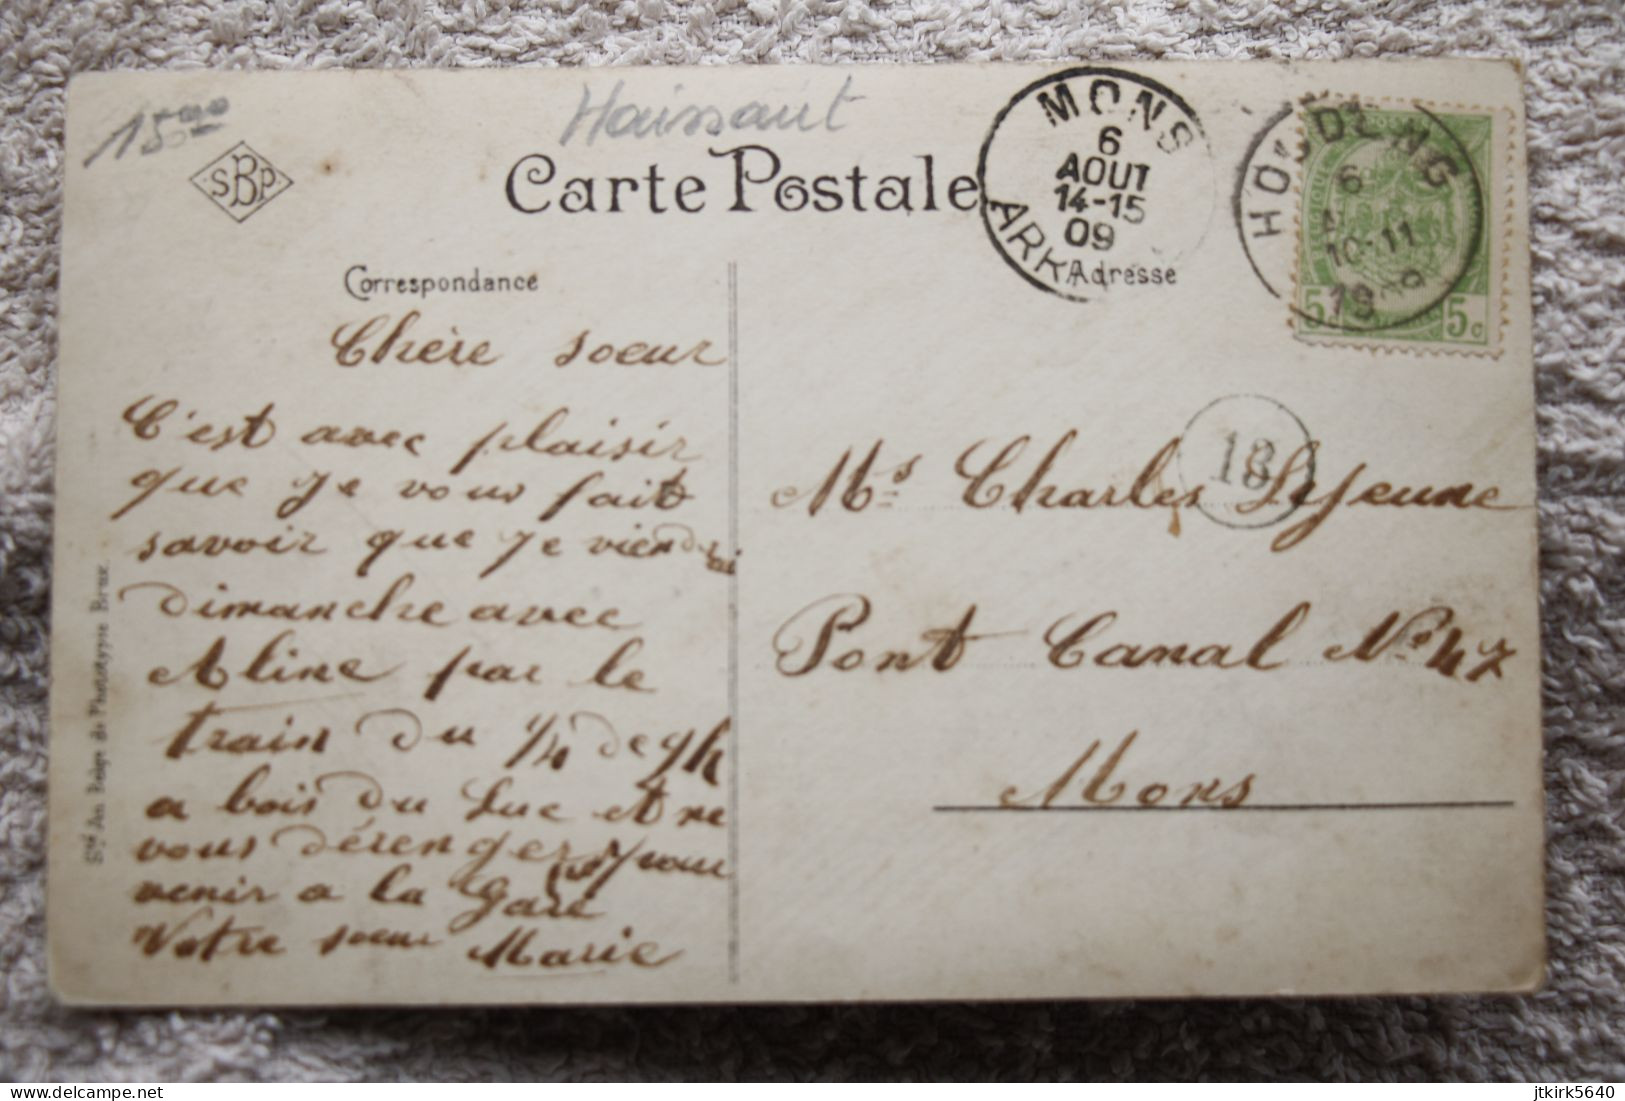 15,00
Hainaut
SBP
Carte Postale
MONS
6
AOUT
14-15
09
HOUDENG
6
10-11
5
5c
Correspondance
Adresse
Chère soeur
C'est avec plaisir
que je vous fait
savoir que je viendrai
dimanche avec
Aline par le
train du 1/4 de 9h
a bois du Luc et ne
vous dérenger pas pour
venir a la Gare
Votre soeur Marie
18
Ms Charles Lejeune
Pont Canal No 47
Mons
Sté An Belge de Phototypie Brux.
delcampe.net
jtkirk5640